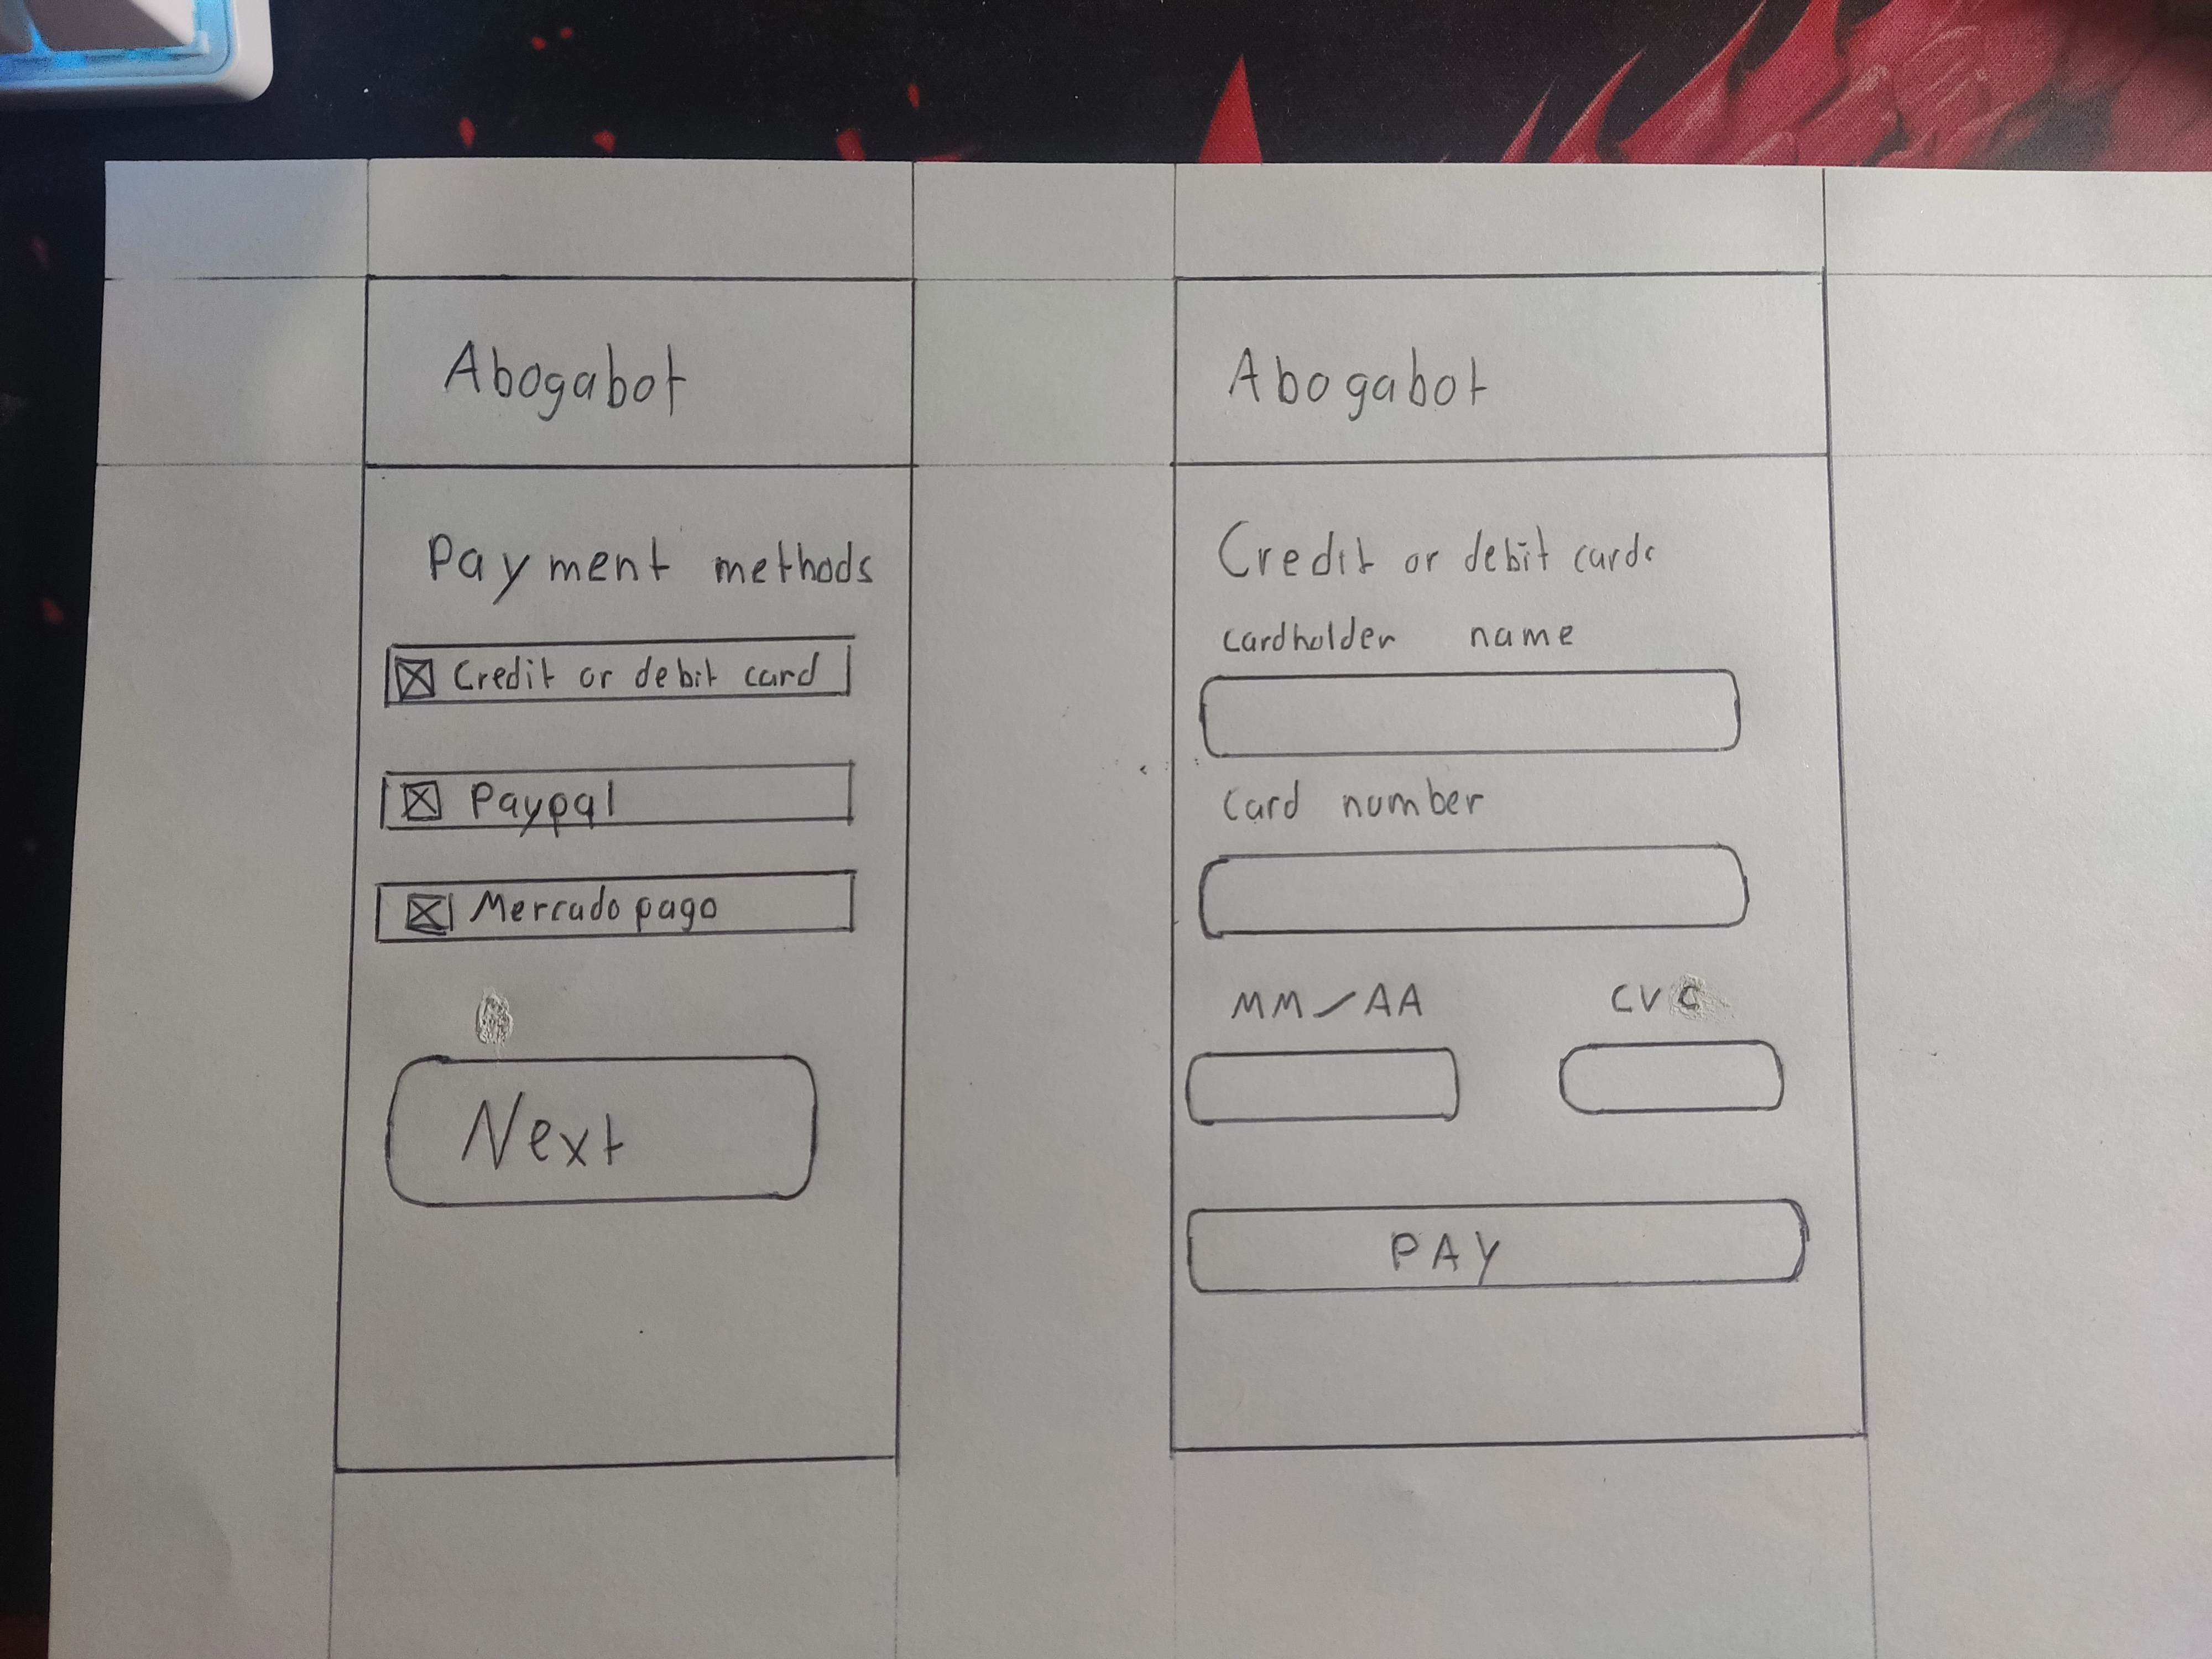 Abogabot
Payment methods
Credit or debit card
Paypal
Mercado pago
Next
Abogabot
Credit or debit cards
cardholder name
Card number
MM/AA CVC
PAY